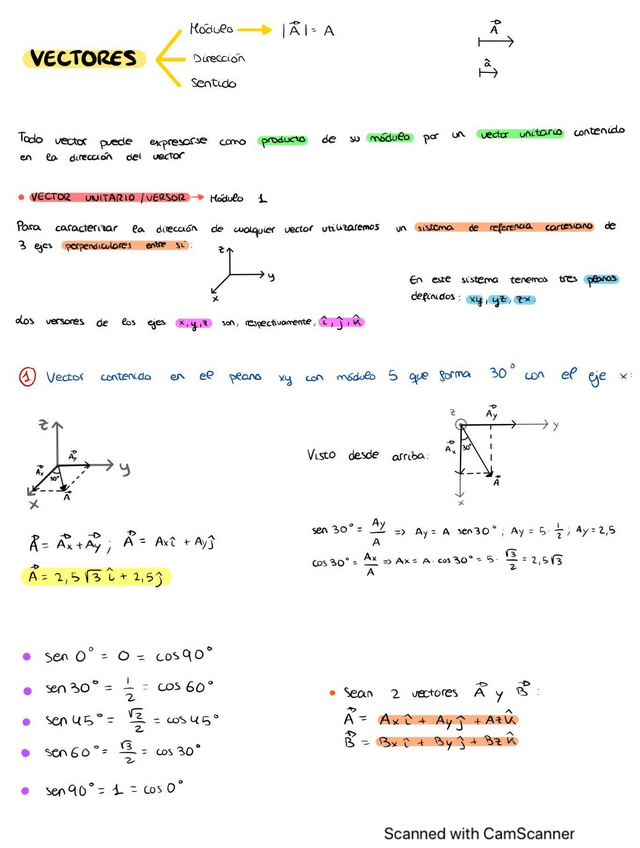 VECTORES
Módulo → |A⃗| = A
Dirección
Sentido
A⃗
â
Todo vector puede expresarse como producto de su módulo por un vector unitario contenido
en la dirección del vector
• VECTOR UNITARIO / VERSOR → Módulo 1
Para caracterizar la dirección de cualquier vector utilizaremos un sistema de referencia cartesiano de
3 ejes perpendiculares entre sí:
z
y
x
En este sistema tenemos tres planos
definidos: xy, yz, zx
Los versores de los ejes x, y, z son, respectivamente, î, ĵ, k̂
① Vector contenido en el plano xy con módulo 5 que forma 30° con el eje x:
z
A⃗y
A⃗x
30°
y
x
A⃗
Visto desde arriba:
z
A⃗y
y
A⃗x
30°
A⃗
x
A⃗ = A⃗x + A⃗y ; A⃗ = Ax î + Ay ĵ
A⃗ = 2,5 √3 î + 2,5 ĵ
sen 30° = Ay/A => Ay = A sen 30° ; Ay = 5 · 1/2 ; Ay = 2,5
cos 30° = Ax/A => Ax = A · cos 30° = 5 · √3/2 = 2,5 √3
• sen 0° = 0 = cos 90°
• sen 30° = 1/2 = cos 60°
• sen 45° = √2/2 = cos 45°
• sen 60° = √3/2 = cos 30°
• sen 90° = 1 = cos 0°
• Sean 2 vectores A⃗ y B⃗ :
A⃗ = Ax î + Ay ĵ + Az k̂
B⃗ = Bx î + By ĵ + Bz k̂
Scanned with CamScanner